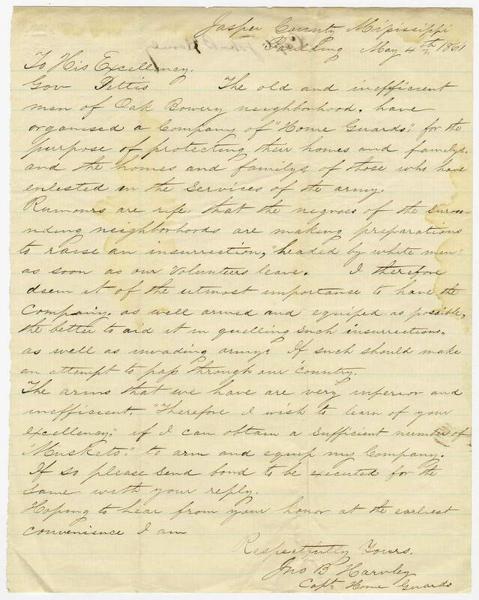 Jasper County Mipissippi
Paulding May 4th 1861
To His Excellency.
Gov Pettis The old and inefficient
men of Oak Bowery neighborhood. have
organised a Company of "Home Guards": for the
purpose of protecting their homes and familys.
and the homes and familys of those who have
enlisted in the Services of the army.
Rumours are rife that the negroes of the Surrou-
nding neighborhoods are making preparations
to raise an insurrection, "headed by white men"
as soon as our Volunteers leave. I therefore
deem it of the utmost importance to have the
Company, as well armed and equiped as possible,
the better to aid it in quelling such insurrections.
as well as invading army: If such should make
an attempt to pass through our Country.
The arms that we have are very inferior and
inefficient "Therefore I wish to learn of your
excellency," if I can obtain a Sufficient number of
"Muskets." to arm and equip my Company.
If so please send bond to be executed for the
same with your reply.
Hoping to hear from your honor at the earliest
convenience I am
Respectfully Yours.
Jno B Harvley
Capt Home Guards